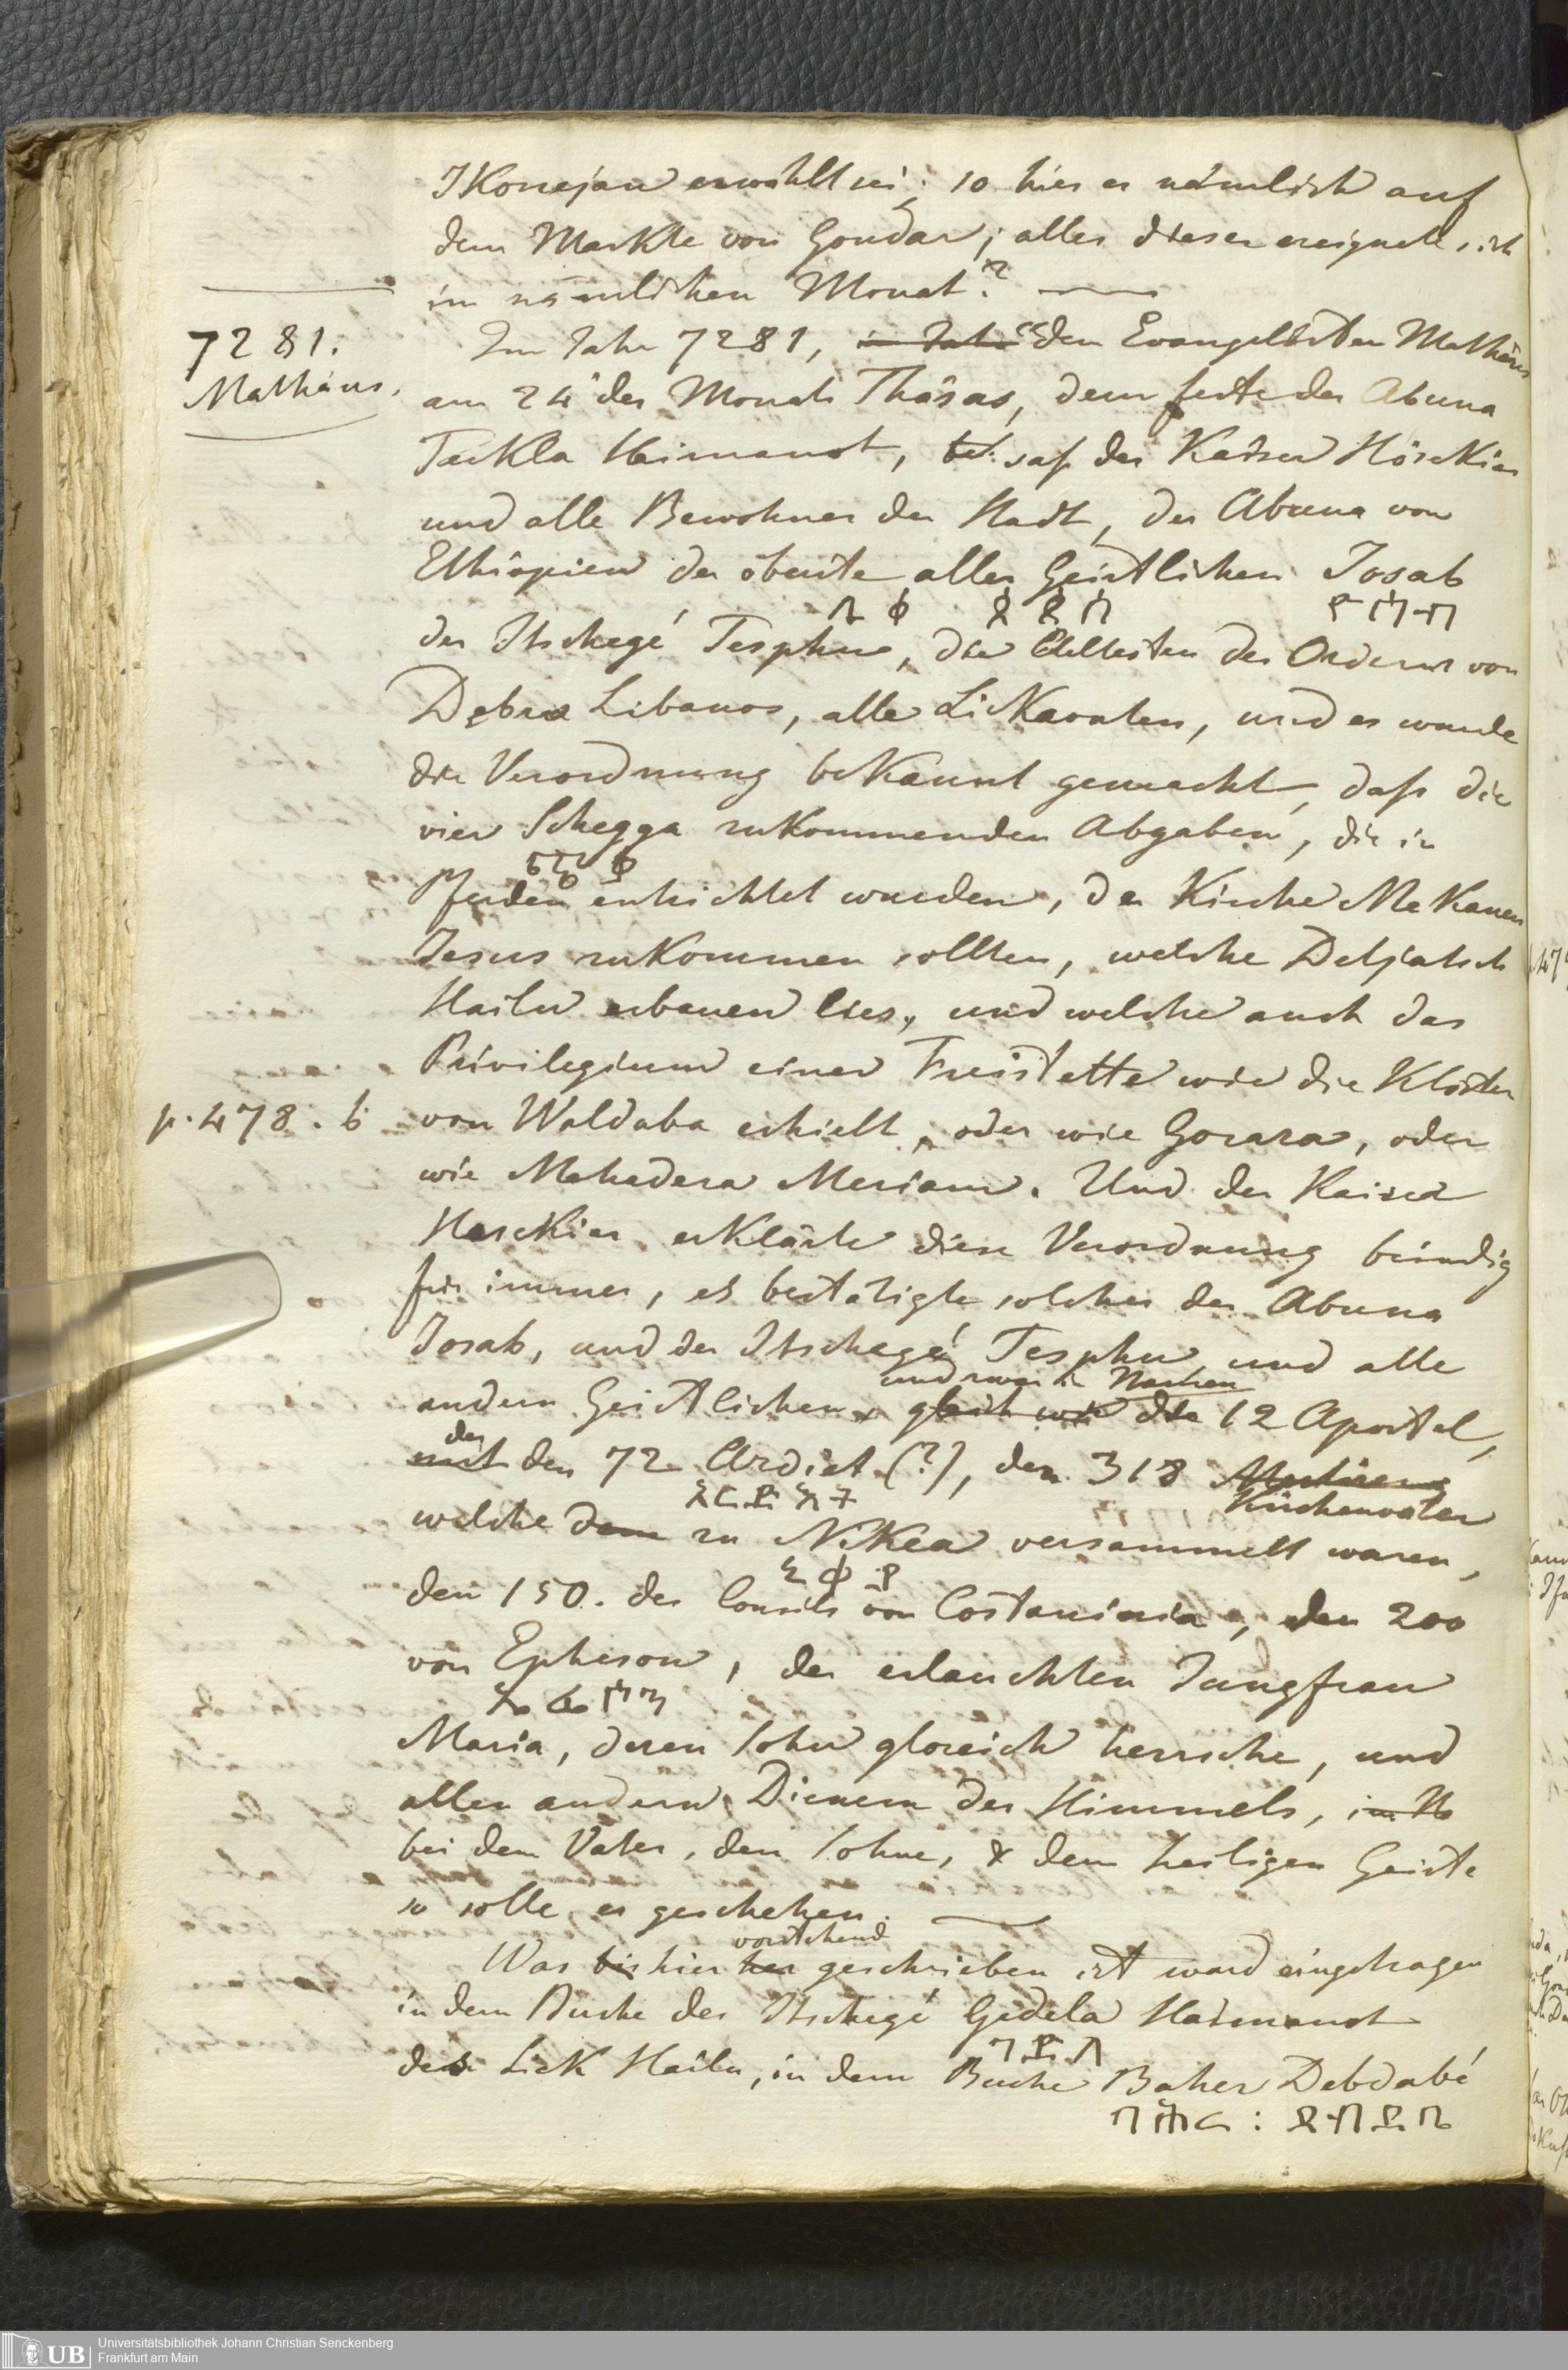 IKonejan erwählt sei; so hies es nämlich auf
dem Markte von Gondar; alles dieses ereignete sich
im nämlichen Monat? —
7281.
Mathäus.
Im Jahr 7281, im Jahr des Evangelisten Mathäus
am 24 des Monats Thâsas, dem feste des Abuna
Teckla Heimanot, saß der Kaiser Hösekias
und alle Bewohner der Stadt, der Abuna von
Ethiopien der öberste aller Geistlichen Josab
ዮሳብ
der Itschegé Tesphu, die Aeltesten des Ordens von
Debra Libanos, alle Lickaonten, und es wurde
die Verordnung bekannt gemacht, daß die
vier Schegga zukommenden Abgaben, die in
Pferden entrichtet wurden, der Kirche Mekanen
Jesus zukommen sollten, welche Detjatsch
Hailu erbauen lies, und welche auch das
Privilegium einer Freistette wie die Klöster
p. 478. b
von Waldaba erhielt, oder wie Gorara, oder
wie Mahedera Meriam. Und der Kaiser
Hesekias erklärte diese Verordnung bündig
für immer, es bestätigte solches der Abuna
Josab, und der Itschegé Tesphu und alle
und zwar Nachen
andern Geistlichen gleich wie die 12 Apostel,
der
mit den 72 Ardiet (?), den 318 Kirchenväter
welche dem zu Nikea versammelt waren,
ኒቅያ
den 150. des Consils von Costaninia, den 200
von Epheson, der erlauchten Jungfrau
ኤፌሶን
Maria, deren Sohn gloreich herrsche, und
allen andern Dienern des Himmels, im
bei dem Vater, den Sohne, & dem heiligen Geiste
so solle es geschehen. —
vorstehend
Was bis hier her geschrieben ist ward eingetragen
in dem Buche des Itschegé Gedela Haimanot
des Lick Hailu, in dem Buche Baher Debdabé
ባሕር : ደብዳቤ
Universitätsbibliothek Johann Christian Senckenberg
Frankfurt am Main
UB